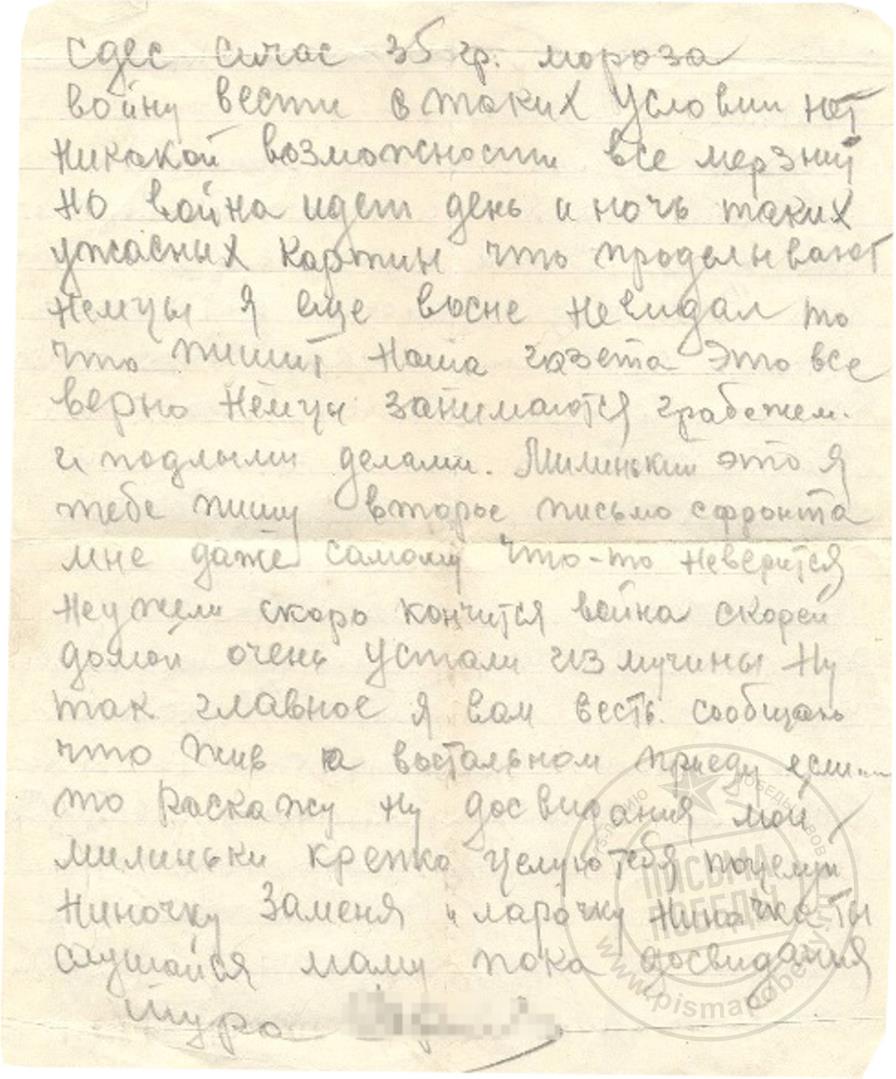 сдес сичас 35 гр. мороза
войну вести в таких условии нет
никакой возможности все мерзнит
но война идет день и ночь таких
ужасных картин что проделывают
немцы я еще восне невидал то
что пишит наша газета это все
верно немцы занимаются грабежем.
и подлыми делами. Милинький это я
тебе пишу второе письмо сфронта
мне даже самому что-то неверится
неужели скоро кончится война скорей
домой очень устали измучины Ну
так главное я вам весть сообщаю
что жив а востальном приеду если
то раскажу ну досвидания мои
милиньки крепко целую тебя поцелуй
Ниночку заменя и ларочку Ниначка ты
слушайся маму пока досвидания
Шура
75-ЛЕТИЮ ПОБЕДЫ
ПИСЬМА
ПОБЕДЫ
www.pismapobedy.ru